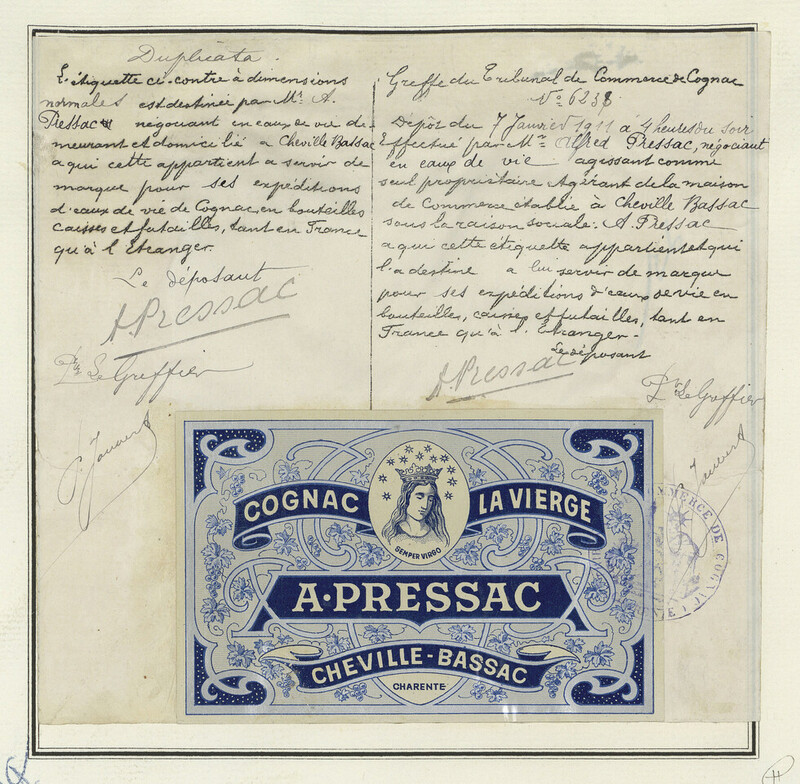 Duplicata.
L'étiquette ci-contre à dimensions
normales est destinée par Mr. A.
Pressac négociant en eaux de vie de-
meurant et domicilié à Cheville Bassac
a qui cette appartient a servir de
marque pour ses expéditions
d'eaux de vie de Cognac, en bouteilles
caisses et futailles, tant en France
qu'à l'Etranger.
Le déposant
A. Pressac
Le Greffier
Greffe du Tribunal de Commerce de Cognac
No 6238
Dépôt du 7 Janvier 1911 à 4 heures du soir
Effectué par Mr. Alfred Pressac, négociant
en eaux de vie agissant comme
seul propriétaire & gérant de la maison
de Commerce établie à Cheville Bassac
sous la raison sociale: A. Pressac
a qui cette étiquette appartient et qui
l'a destine a lui servir de marque
pour ses expéditions d'eaux de vie en
bouteilles, caisses et futailles, tant en
France qu'à l'Etranger-
Le déposant
A. Pressac
Le Greffier
COGNAC LA VIERGE
SEMPER VIRGO
A·PRESSAC
CHEVILLE-BASSAC
CHARENTE
COMMERCE DE COGNAC